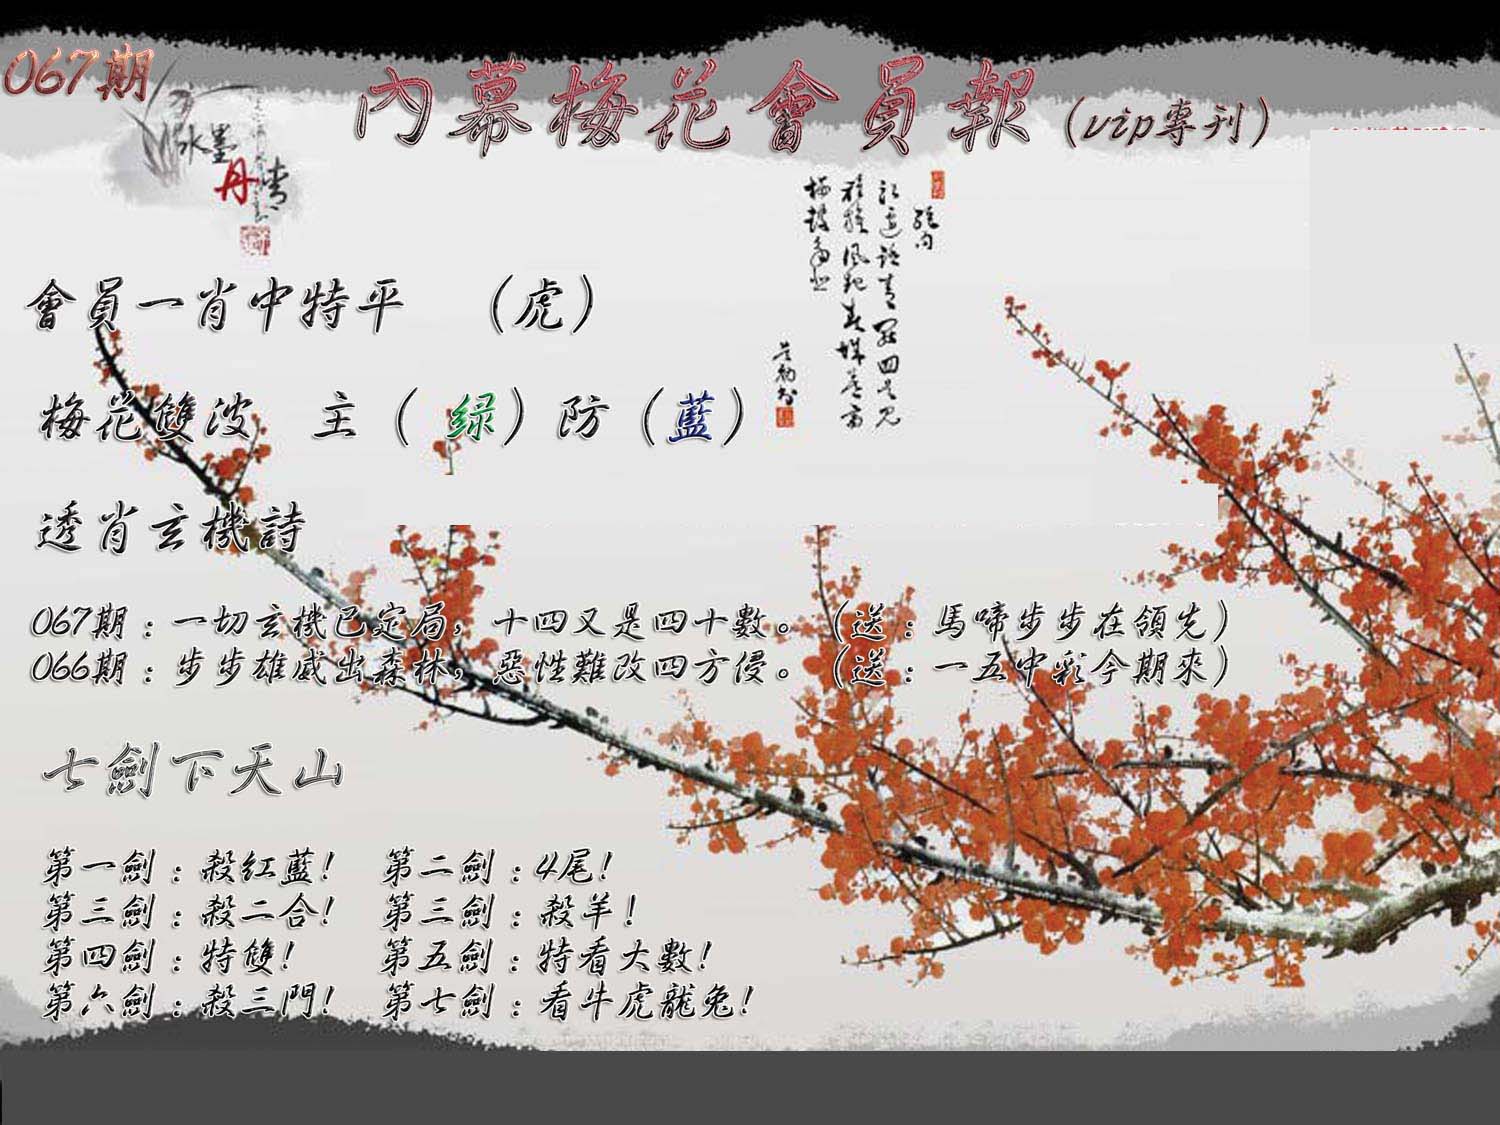 067期
內幕梅花會員報(vip專刊)
水墨
丹青
會員一肖中特平 (虎)
梅花雙波 主(綠)防(藍)
透肖玄機詩
067期:一切玄機已定局,十四又是四十數。(送:馬啼步步在領先)
066期:步步雄威出森林,惡性難改四方侵。(送:一五中彩今期來)
七劍下天山
第一劍:殺紅藍! 第二劍:4尾!
第三劍:殺二合! 第三劍:殺羊!
第四劍:特雙! 第五劍:特看大數!
第六劍:殺三門! 第七劍:看牛虎龍兔!